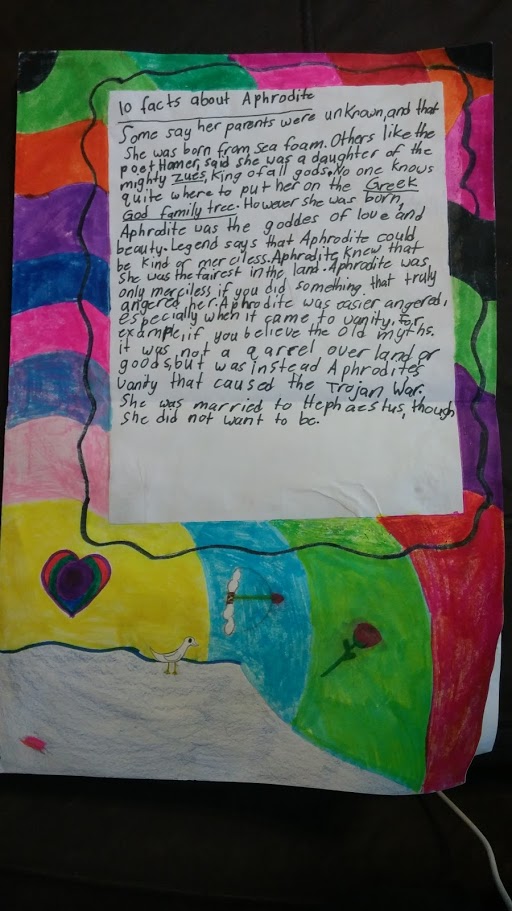 10 facts about Aphrodite
Some say her parents were unknown, and that
She was born from sea foam. Others like the
poet Homer, said she was a daughter of the
mighty zues, King of all gods. No one knows
quite where to put her on the Greek
God family tree. However she was born,
Aphrodite was the goddes of love and
beauty. Legend says that Aphrodite could
be kind or merciless. Aphrodite knew that
she was the fairest in the land. Aphrodite was
only merciless if you did something that truly
angered her. Aphrodite was easier angered,
especially when it came to vanity. For
example, if you believe the old myths.
it was not a qarrel over land or
goods, but was instead Aphrodites
vanity that caused the Trojan War.
She was married to Hephaestus, though
She did not want to be.